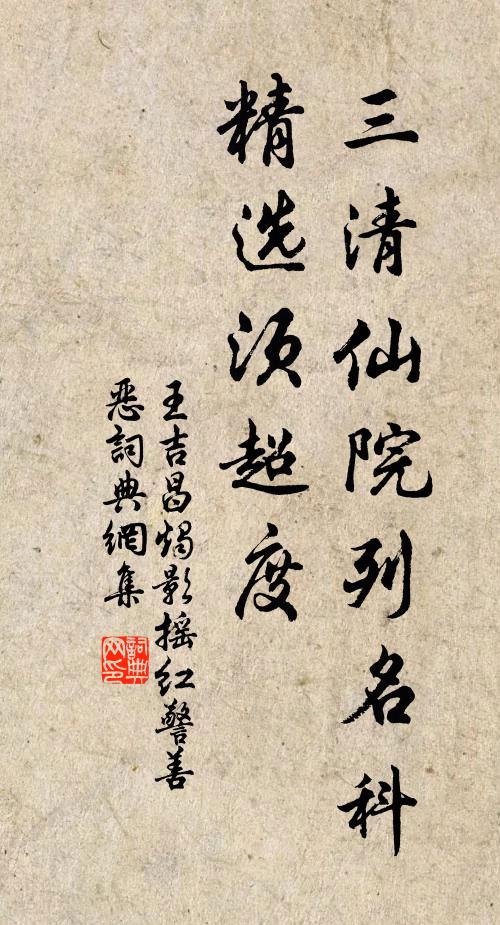 三清仙院列名科
精选须超度
王吉昌烛影摇红警善
恶詞典網集
詞典网印